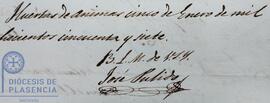 Huertas de animas cinco de Enero de mil
cincuenta y siete.
B. L. M. de V. S. Y.
José Pulido
DIÓCESIS DE
PLASENCIA